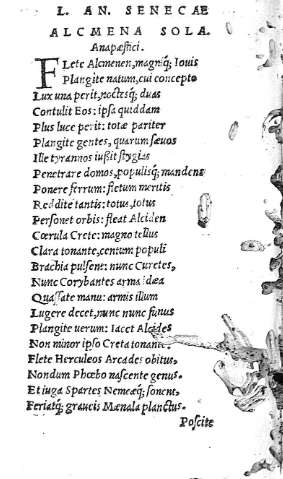 L. AN. SENECAE
ALCMENA SOLA.
Anapæstici.
FLete Alcmenen, magnq; Iouis
Plangite natum, cui concepto
Lux una perit, noctesq; duas
Contulit Eos: ipsa quiddam
Plus luce perit: totæ pariter
Plangite gentes, quarum sæuos
Ille tyrannos iußit stygias
Penetrare domos, populisq; madens
Ponere ferrum: fletum meritis
Reddite tantis: totus, totus
Personet orbis: fleat Alciden
Cœrula Crete: magno tellus
Clara tonante, centum populi
Brachia pulsent: nunc Curetes,
Nunc Corybantes arma idæa
Quaßate manu: armis illum
Lugere decet, nunc nunc funus
Plangite uerum: Iacet Alcides
Non minor ipso Creta tonante.
Flete Herculeos Arcades obitus,
Nondum Phœbo nascente genus.
Et iuga Spartes Nemeæq; sonent,
Feriatq; graueis Mænala planctus.
Poscite